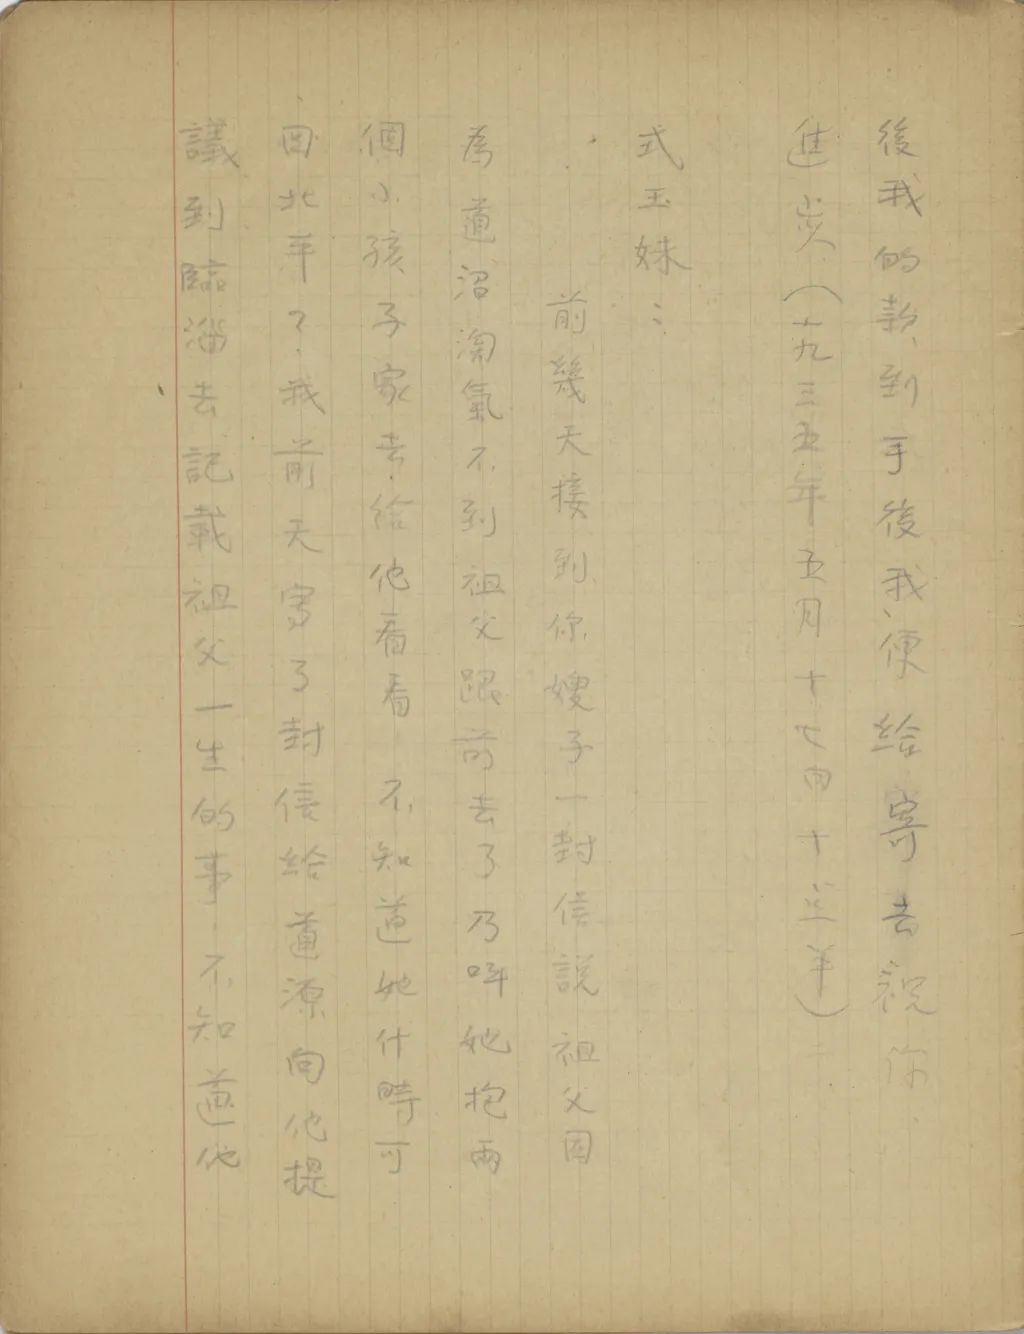 後我的款到手後我便給寄去祝你
進炎（一九三五年五月十七
式玉妹：
前幾天接到你嫂子一封信說祖父因
為道沼淘氣不到祖父跟前去了乃叫她抱兩
個小孩子家去給他看看 不知道她什時可
回北平？我前天寫了封信給道源向他提
議到臨淄去記載祖父一生的事．不知道他